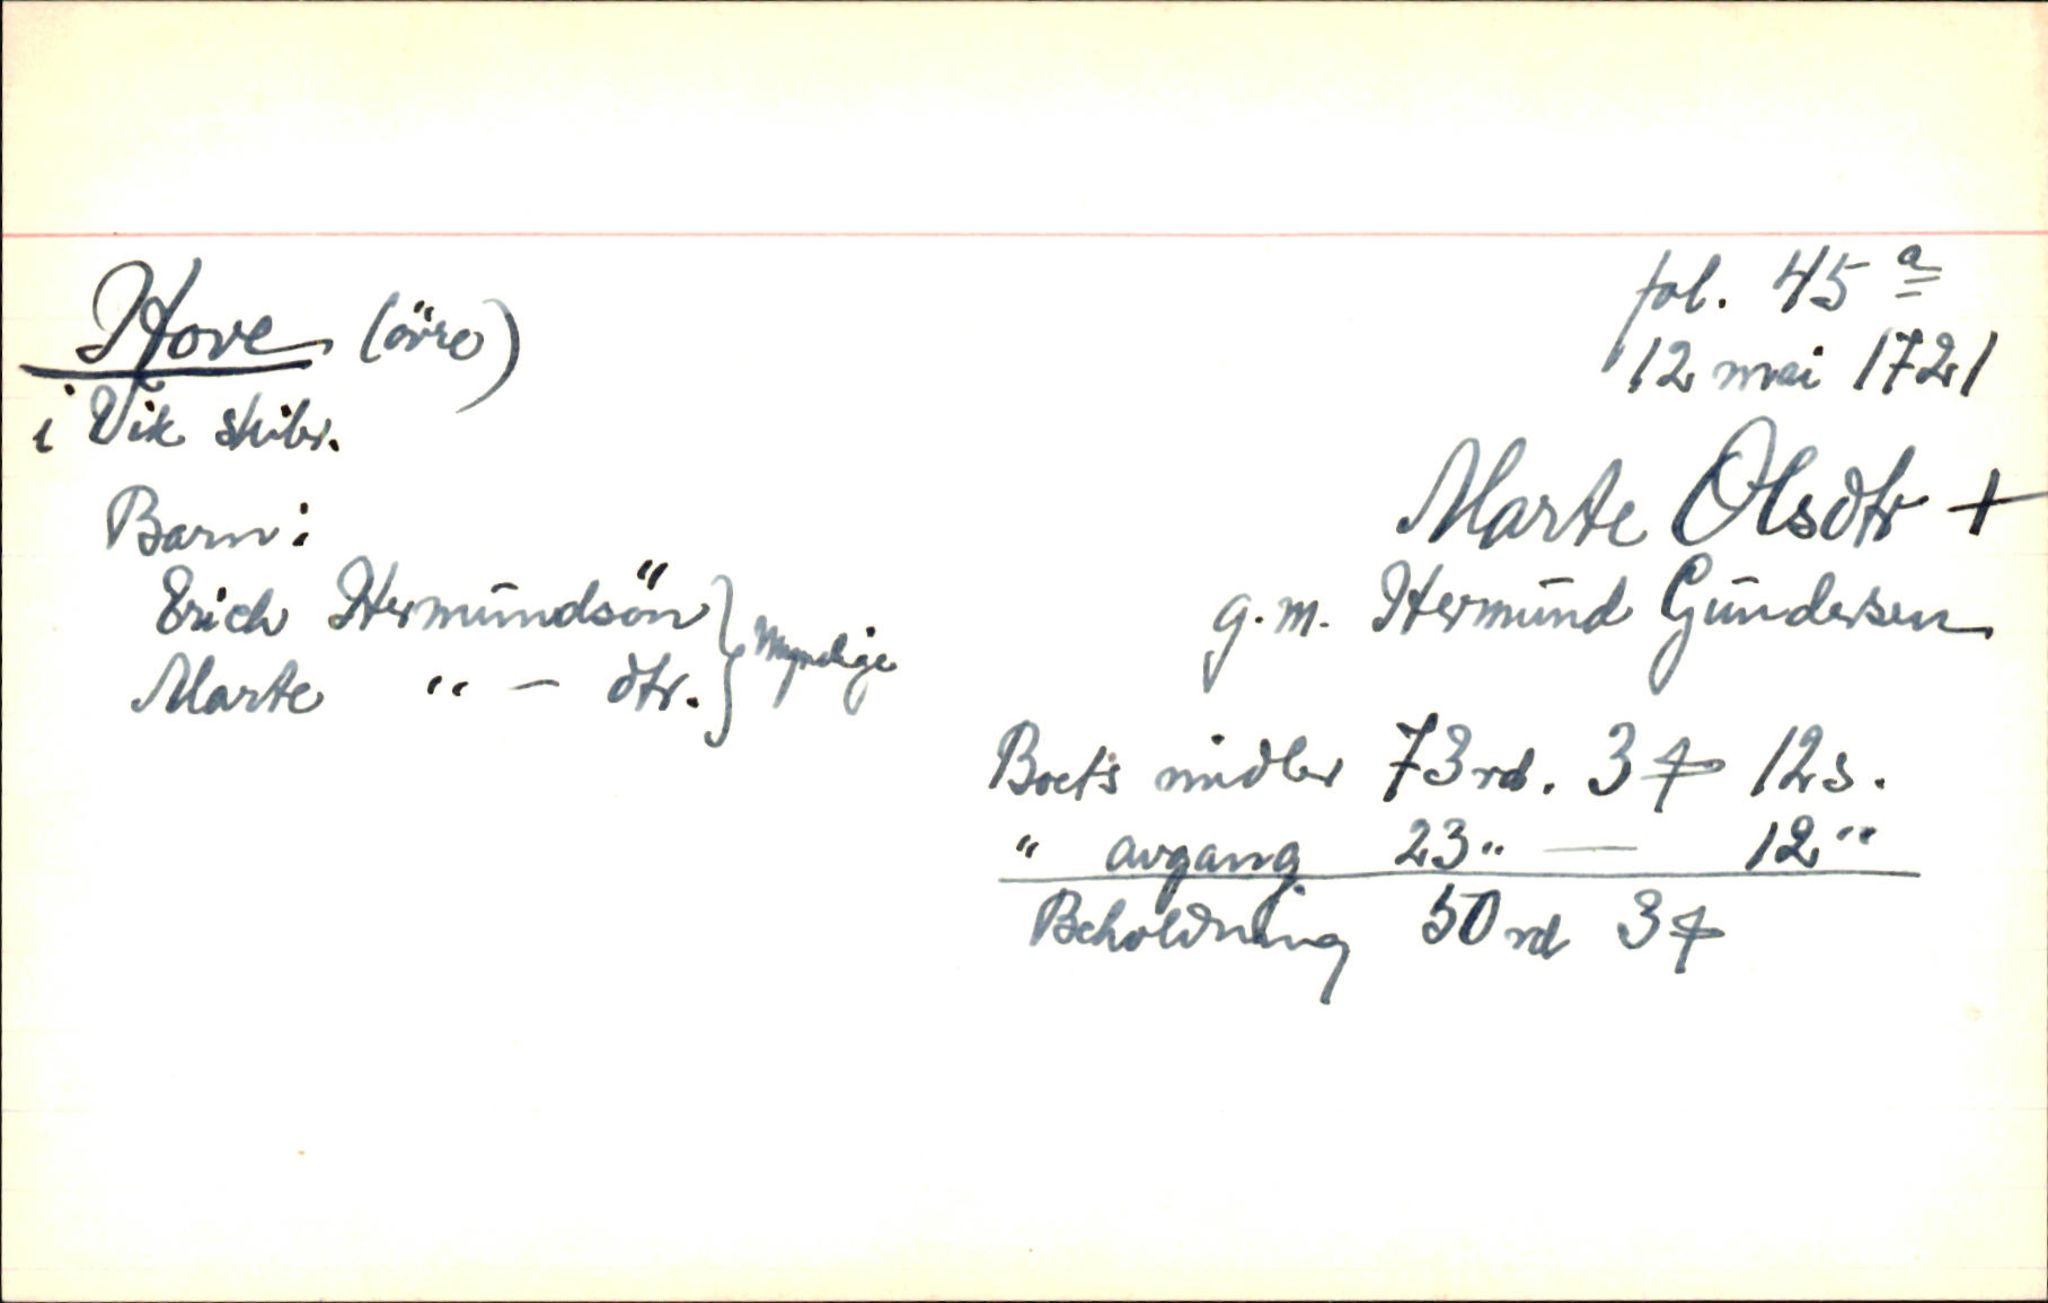 Hove (övre)
i Vik skibr.
fol. 45 a
12 mai 1721
Marte Olsdtr +
g.m. Hermund Gundersen
Barn:
Erich Hermundsön
Marte " — dtr.
} Myndige
Boets midler 73 rd. 3 ꝑ 12 s.
" avgang 23 " — 12 "
Beholdning 50 rd 3 ꝑ